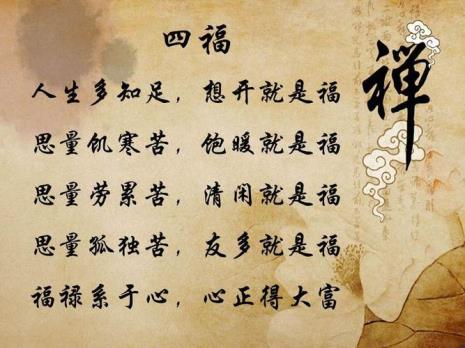 四福
人生多知足，想开就是福
思量饥寒苦，饱暖就是福
思量劳累苦，清闲就是福
思量孤独苦，友多就是福
福禄系于心，心正得大富
禅